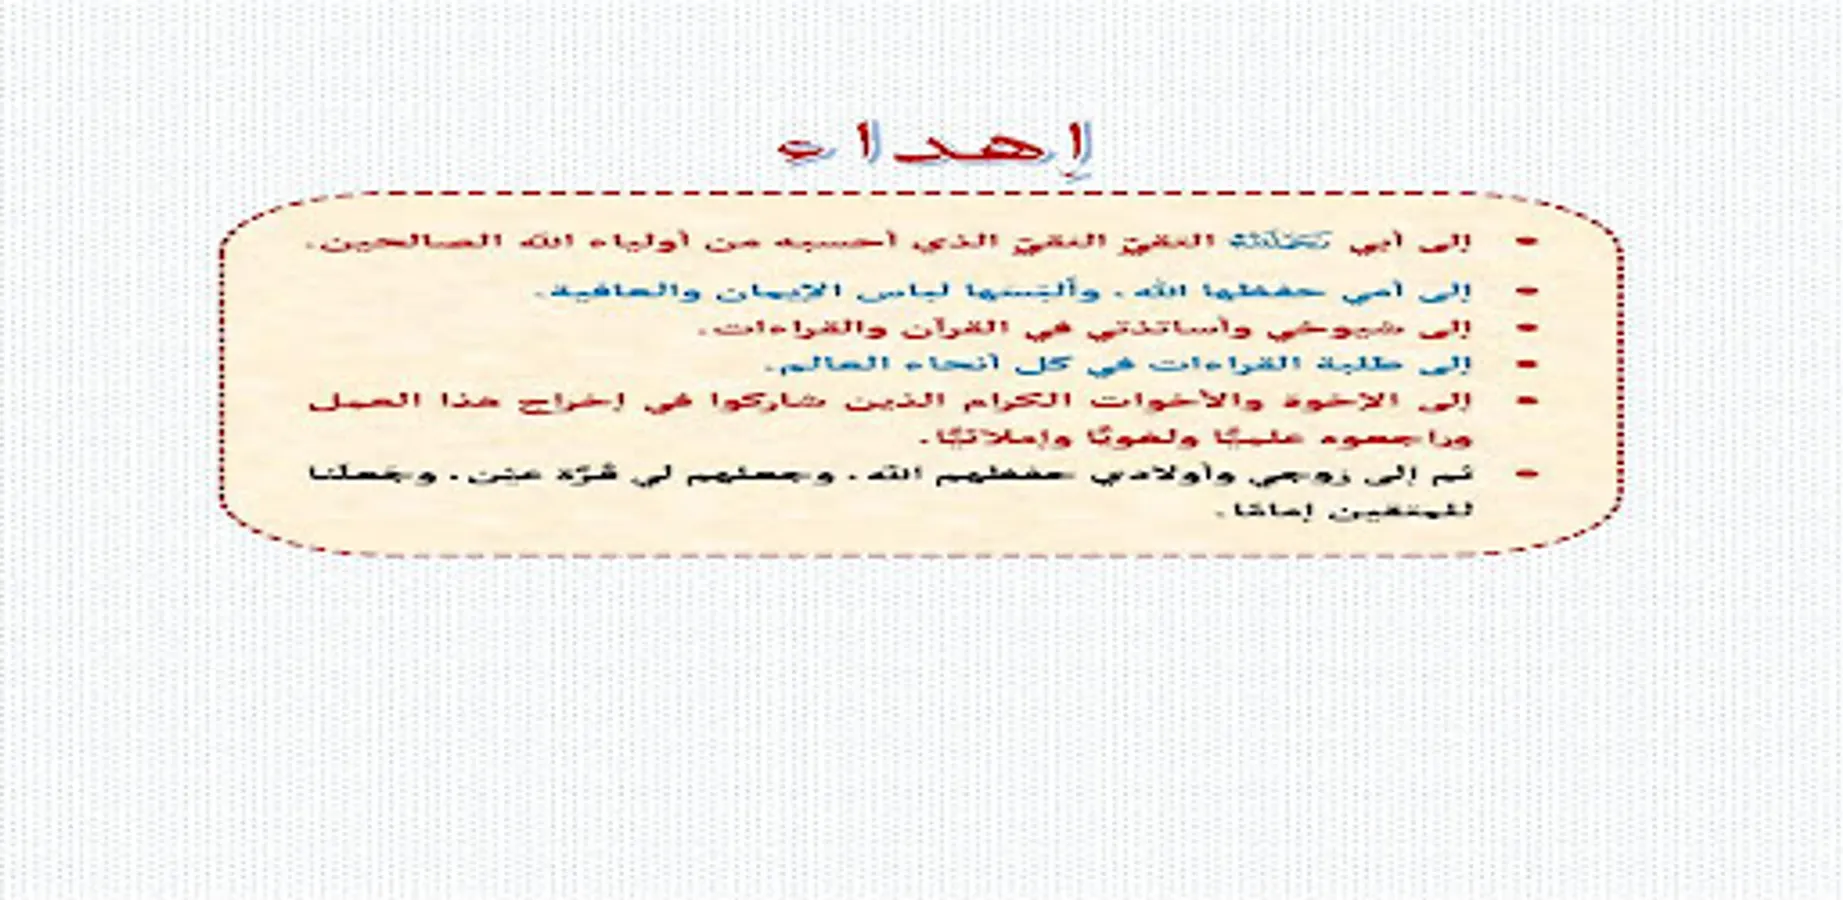 إهداء
إلى أبي رَحِمَهُ ٱللَّهُ التقيّ النقيّ الذي أحسبه من أولياء الله الصالحين.
إلى أمي حفظها الله، وألبَسَها لباس الإيمان والعافية.
إلى شيوخي وأساتذتي في القرآن والقراءات.
إلى طلبة القراءات في كل أنحاء العالم.
إلى الإخوة والأخوات الكرام الذين شاركوا في إخراج هذا العمل
وراجعوه علميًّا ولغويًّا وإملائيًّا.
ثم إلى زوجي وأولادي حفظهم الله، وجعلهم لي قُرّة عيْن، وجَعلنا
للمتقين إمامًا.